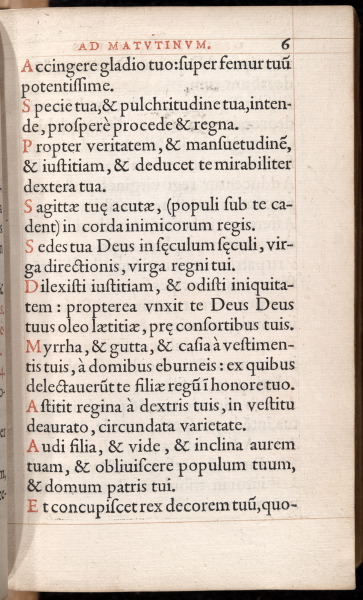 AD MATVTINVM. 6
Accingere gladio tuo:ſuper femur tuũ
potentiſſime.
Specie tua,& pulchritudine tua,inten-
de, proſperè procede & regna.
Propter veritatem, & manſuetudinẽ,
& iuſtitiam, & deducet te mirabiliter
dextera tua.
Sagittæ tuę acutæ, (populi ſub te ca-
dent) in corda inimicorum regis.
Sedes tua Deus in ſęculum ſęculi, vir-
ga directionis, virga regni tui.
Dilexiſti iuſtitiam, & odiſti iniquita-
tem : propterea vnxit te Deus Deus
tuus oleo lætitiæ, prę conſortibus tuis.
Myrrha, & gutta, & caſia à veſtimen-
tis tuis, à domibus eburneis : ex quibus
delectauerũt te filiæ regũ ĩ honore tuo.
Aſtitit regina à dextris tuis, in veſtitu
deaurato, circundata varietate.
Audi filia, & vide, & inclina aurem
tuam, & obliuiſcere populum tuum,
& domum patris tui.
Et concupiſcet rex decorem tuũ, quo-